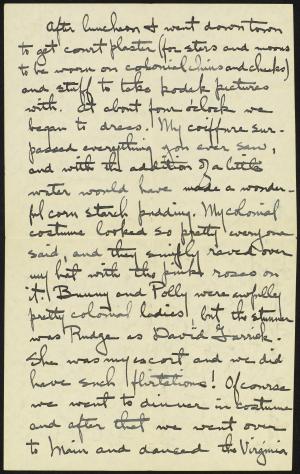 After luncheon I went down town
to get court plaster (for stars and moons
to be worn on colonial chins and cheeks)
and stuff to take kodak pictures
with. At about four o'clock we
began to dress. My coiffure sur-
passed everything you ever saw,
and with the addition of a little
water would have made a wonder-
ful corn starch pudding. My colonial
costume looked so pretty everyone
said and they simply raved over
my hat with the pink roses on
it. Bunny and Polly were awfully
pretty colonial ladies, but the stunner
was Rudge as David Garrick.
She was my escort and we did
have such flirtations! Of course
we went to dinner in costume
and after that we went over
to Main and danced the Virginia